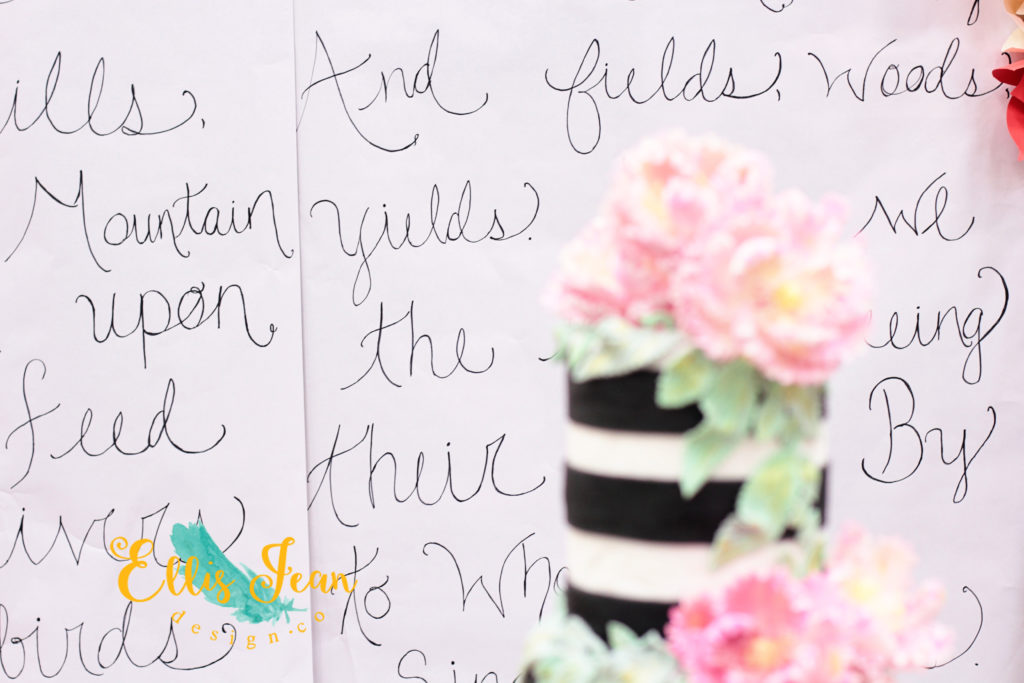 ills, And fields, Woods,
Mountain yields. we
upon, the eing
feed their By
ivers to Wh
birds Sin
Ellis Jean
design.co